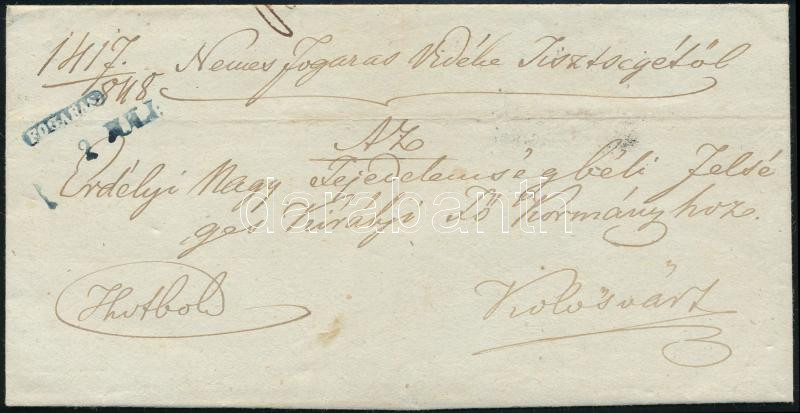 1417.
1848 Nemes Fogaras Vidéke Tisztségétöl
FOGARAS
2 JUL:
AZ
Erdélyi Nagy Fejedelemségbéli Felsé
ges Királyi Fö Kormányhoz.
Kolósvárt
darabanth